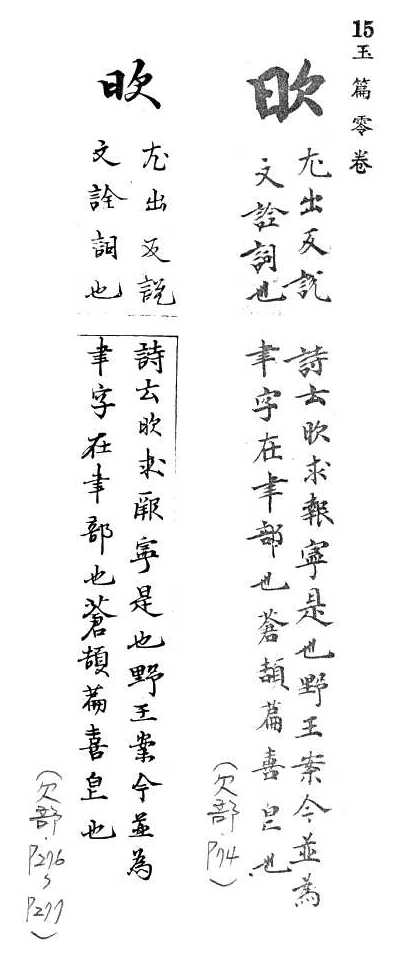 15玉篇零卷
欥
尤出反說
文詮詞也
詩云欥求報寧是也野王案今並為
聿字在聿部也蒼頡篇喜皃也
(欠部.P74)
欥
尤出反說
文詮詞也
詩云欥求厥寧是也野王案今並為
聿字在聿部也蒼頡篇喜皃也
(欠部.P276~P277)